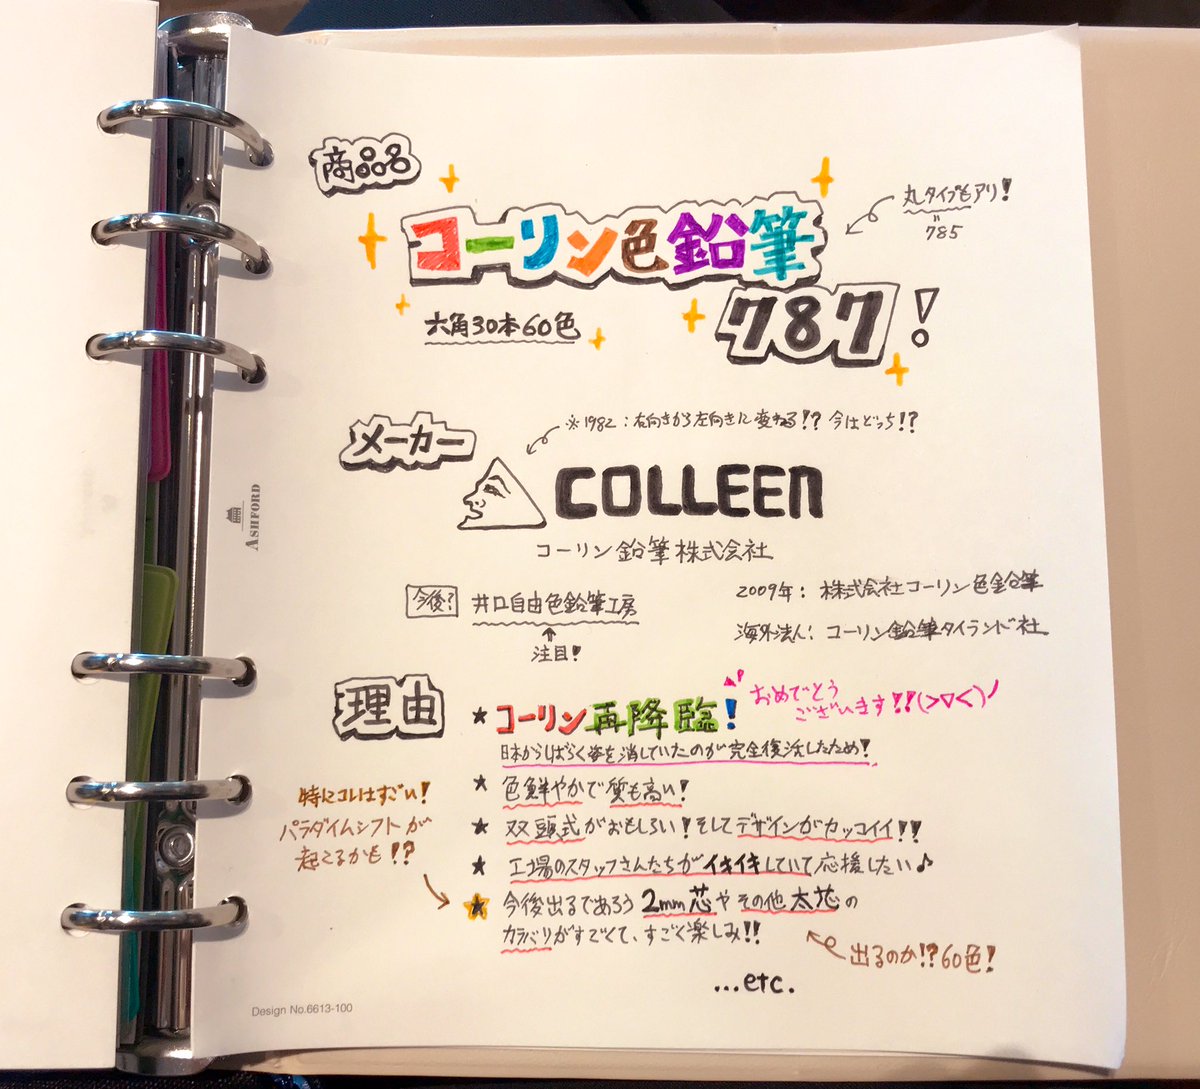 商品名
コーリン色鉛筆
787!
丸タイプもアリ!
785
六角30本60色
メーカー
※1982:右向きから左向きに変わる!? 今はどっち!?
COLLEEN
コーリン鉛筆株式会社
今後? 井口自由色鉛筆工房
注目!
2009年: 株式会社コーリン色鉛筆
海外法人: コーリン鉛筆タイランド社
理由
★ コーリン再降臨!
おめでとう
ございます!!(>▽<)ノ
日本からしばらく姿を消していたのが完全復活したため!
★ 色鮮やかで質も高い!
★ 双頭式がおもしろい!そしてデザインがカッコイイ!!
★ 工場のスタッフさんたちがイキイキしていて応援したい♪
特にコレはすごい!
パラダイムシフトが
起こるかも!?
★ 今後出るであろう2mm芯やその他太芯の
カラバリがすごくて、すごく楽しみ!!
出るのか!?60色!
...etc.
ASHFORD
Design No.6613-100